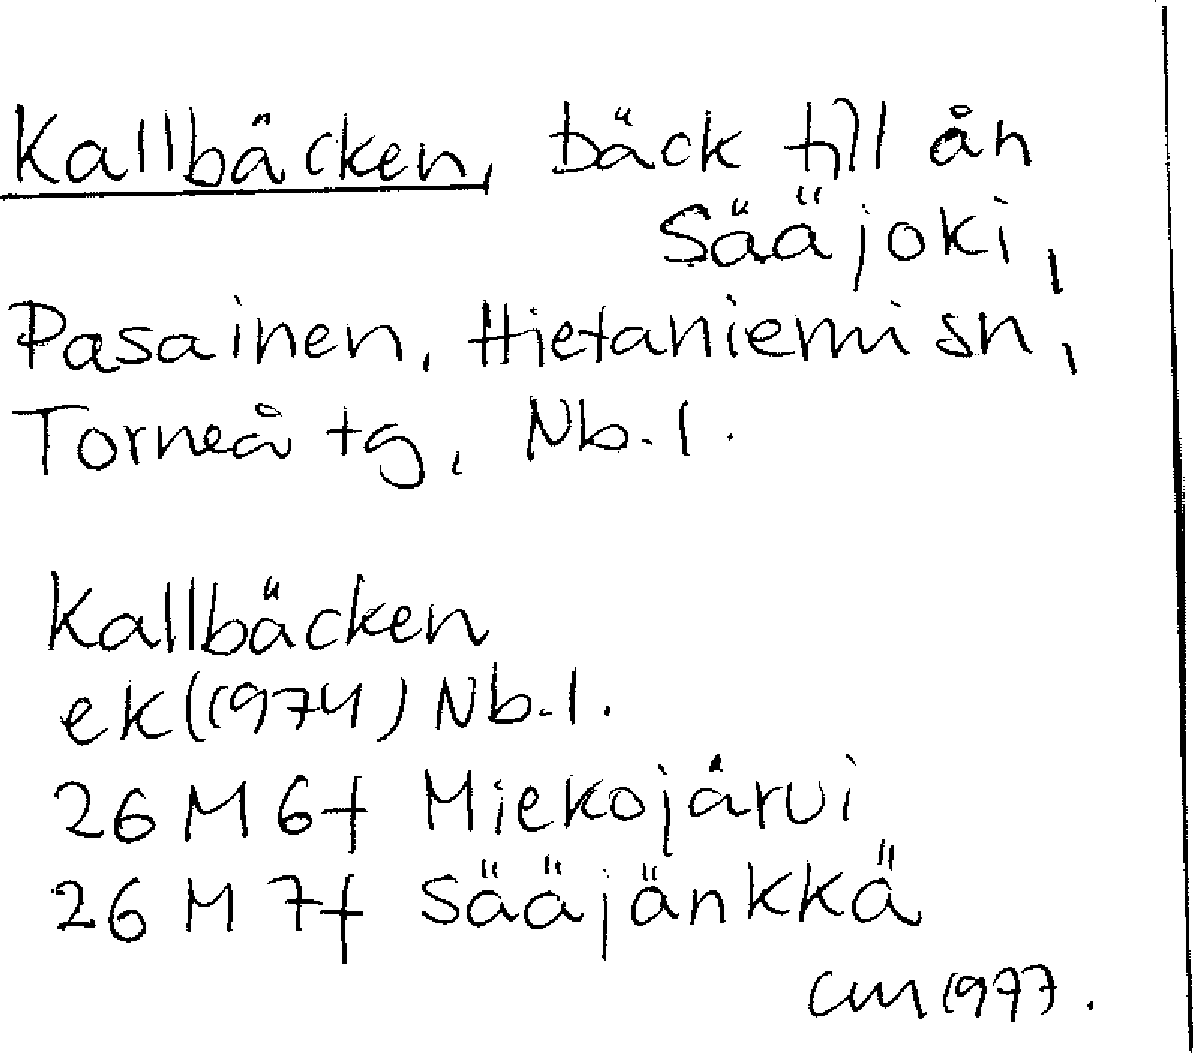 Kallbäcken, bäck till ån
Sääjoki,
Pasainen, Hietaniemi sn,
Torneå tg, Nb. l.
Kallbäcken
ek (1974) Nb. l.
26 M 6f Miekojärvi
26 M 7f Sääjänkkä
CM 1977.